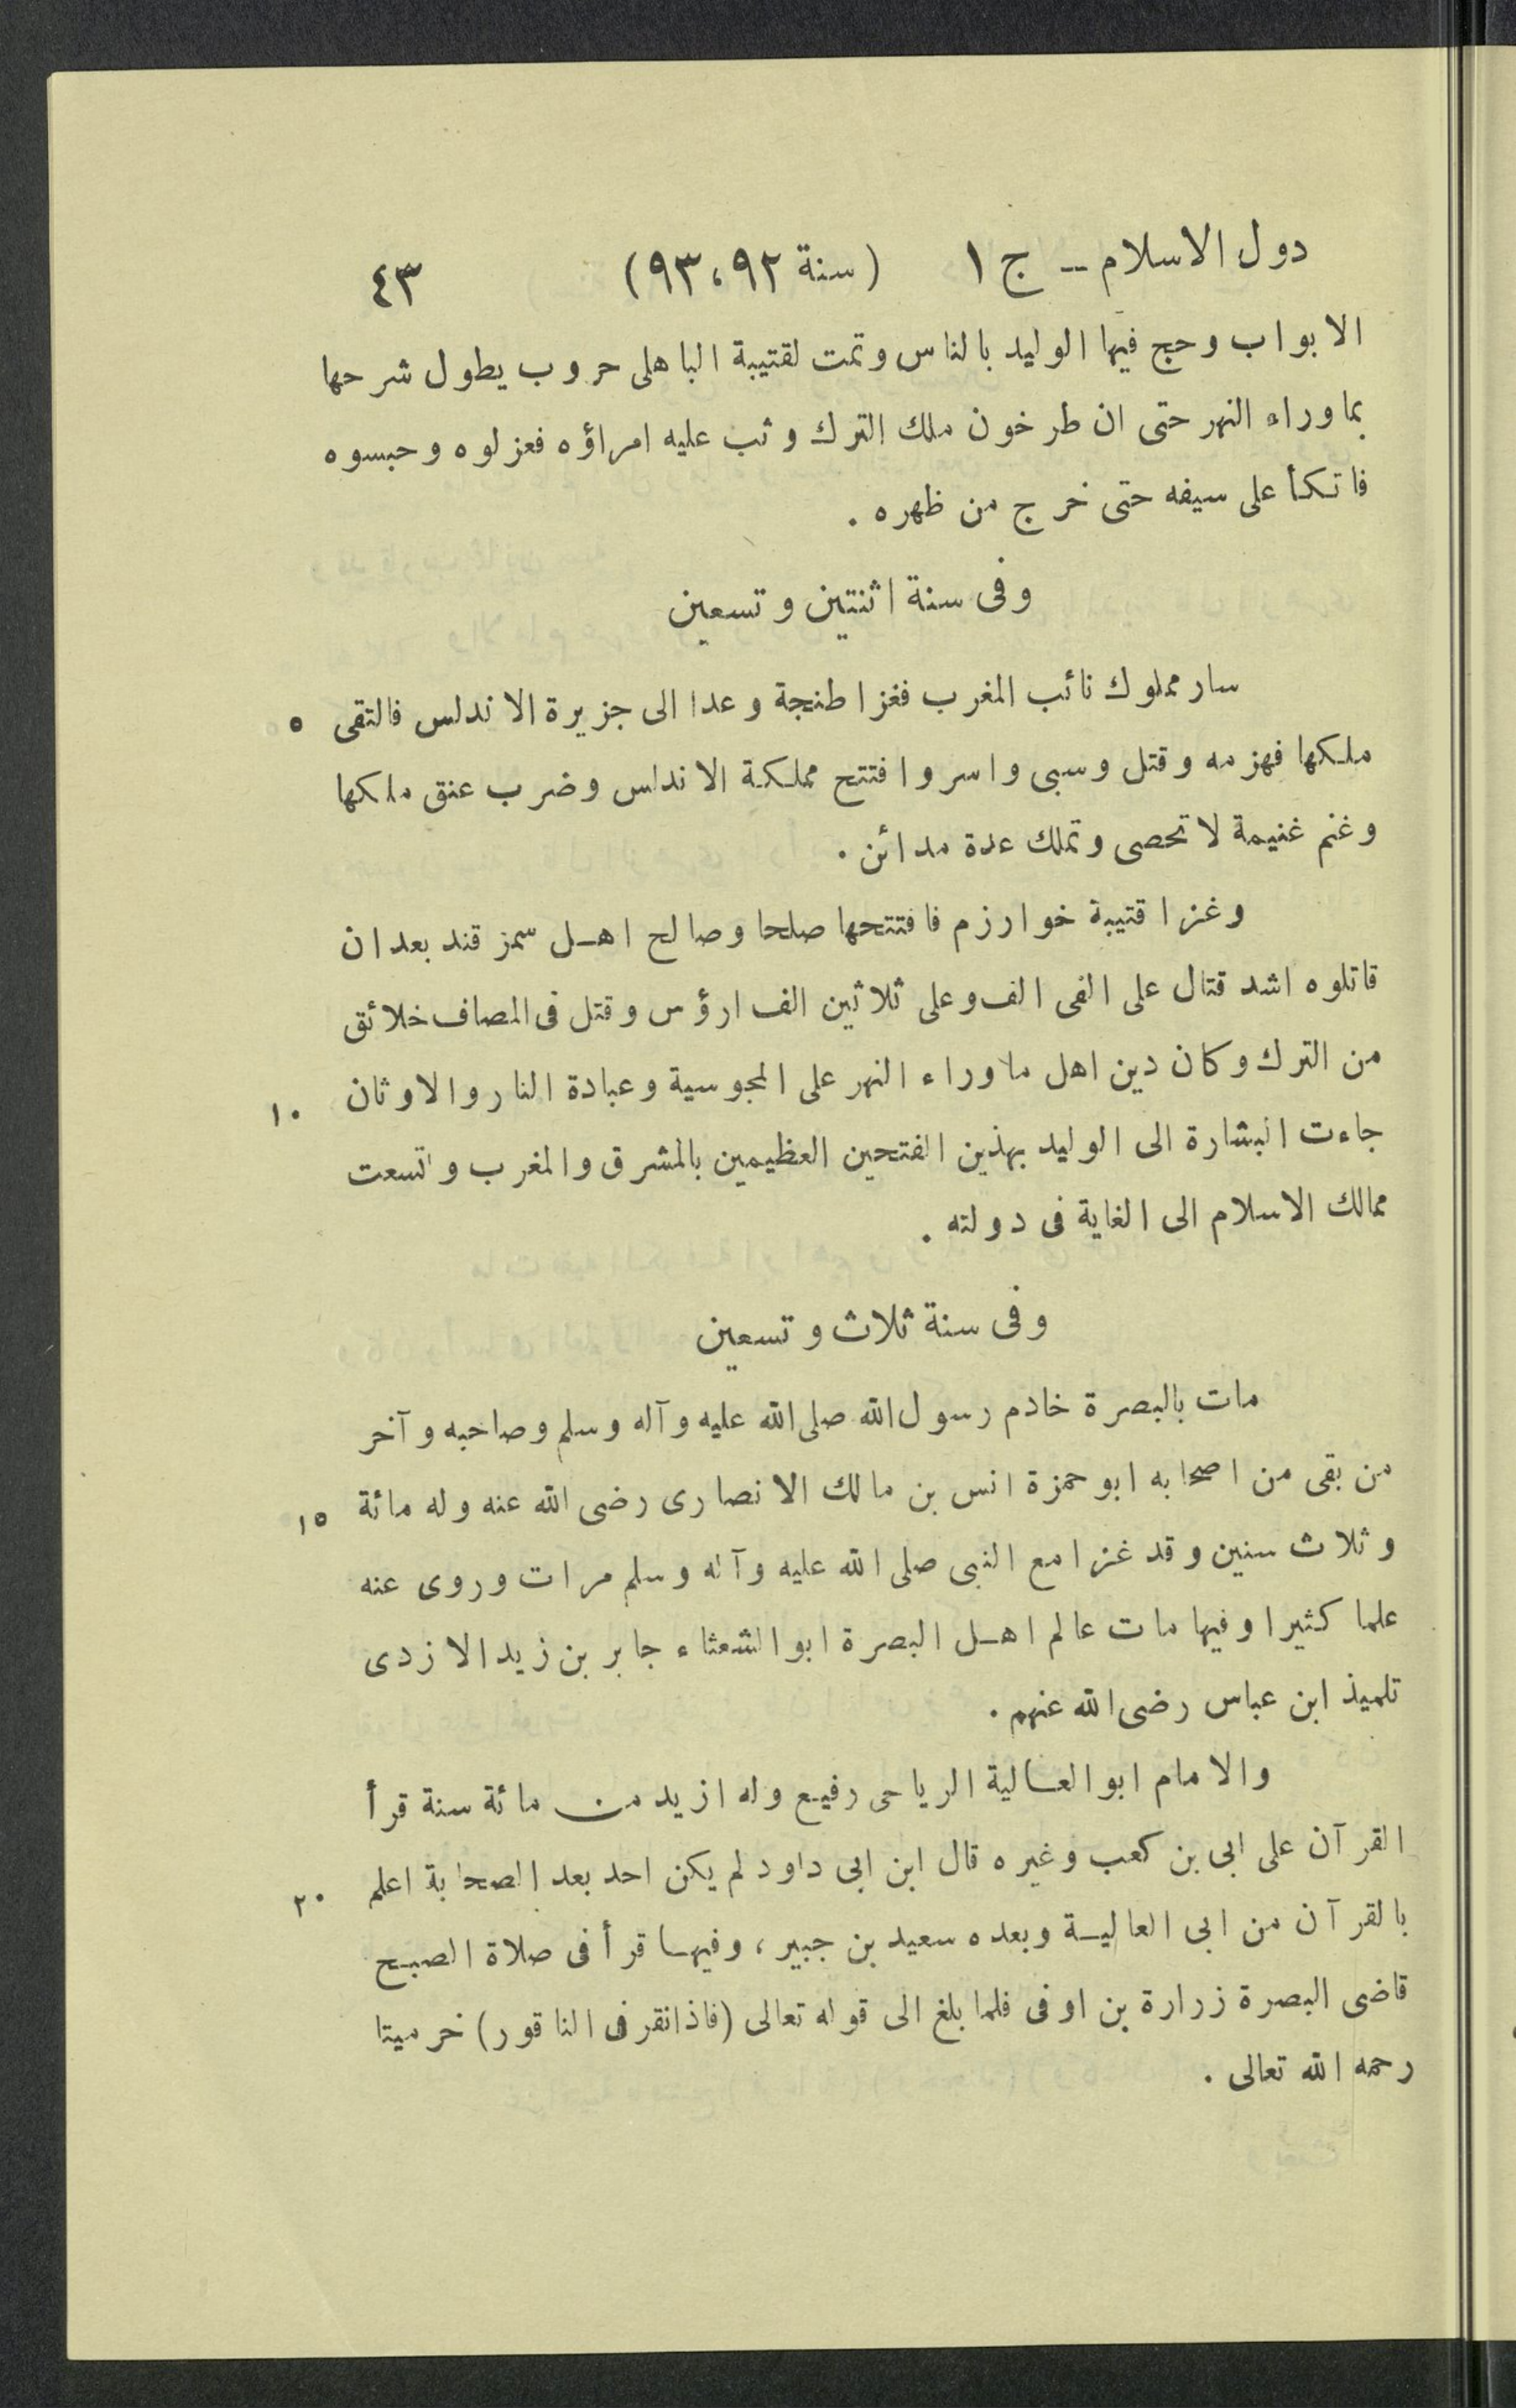 دول الاسلام -- ج ١ (سنة ٩٢، ٩٣) ٤٣
الابواب وحج فيها الوليد بالناس وتمت لقتيبة الباهلى حروب يطول شرحها
بماوراء النهر حتى ان طرخون ملك الترك وثب عليه امراؤه فعزلوه وحبسوه
فاتكأ على سيفه حتى خرج من ظهره .
وفى سنة اثنتين وتسعين
سار مملوك نائب المغرب فغزا طنجة وعدا الى جزيرة الاندلس فالتقى ٥
ملكها فهزمه وقتل وسبى واسر وافتتح مملكة الاندلس وضرب عنق ملكها
وغنم غنيمة لا تحصى وتملك عدة مدائن .
وغزا قتيبة خوارزم فافتتحها صلحا وصالح اهل سمرقند بعد ان
قاتلوه اشد قتال على الفى الف وعلى ثلاثين الف ارؤس وقتل فى المصاف خلائق
من الترك وكان دين اهل ماوراء النهر على المجوسية وعبادة النار والاوثان ١٠
جاءت البشارة الى الوليد بهذين الفتحين العظيمين بالمشرق والمغرب واتسعت
ممالك الاسلام الى الغاية فى دولته .
وفى سنة ثلاث وتسعين
مات بالبصرة خادم رسول الله صلى الله عليه وآله وسلم وصاحبه وآخر
من بقى من اصحابه ابو حمزة انس بن مالك الانصارى رضى الله عنه وله مائة ١٥
وثلاث سنين وقد غزا مع النبى صلى الله عليه وآله وسلم مرات وروى عنه
علما كثيرا وفيها مات عالم اهل البصرة ابو الشعثاء جابر بن زيد الازدى
تلميذ ابن عباس رضى الله عنهم .
والامام ابو العالية الرياحى رفيع وله ازيد من مائة سنة قرأ
القرآن على ابى بن كعب وغيره قال ابن ابى داود لم يكن احد بعد الصحابة اعلم ٢٠
بالقرآن من ابى العالية وبعده سعيد بن جبير، وفيها قرأ فى صلاة الصبح
قاضى البصرة زرارة بن اوفى فلما بلغ الى قوله تعالى (فاذا نقر فى الناقور) خر ميتا
رحمه الله تعالى .